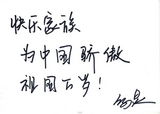 快乐家族
为中国骄傲
祖国万岁!